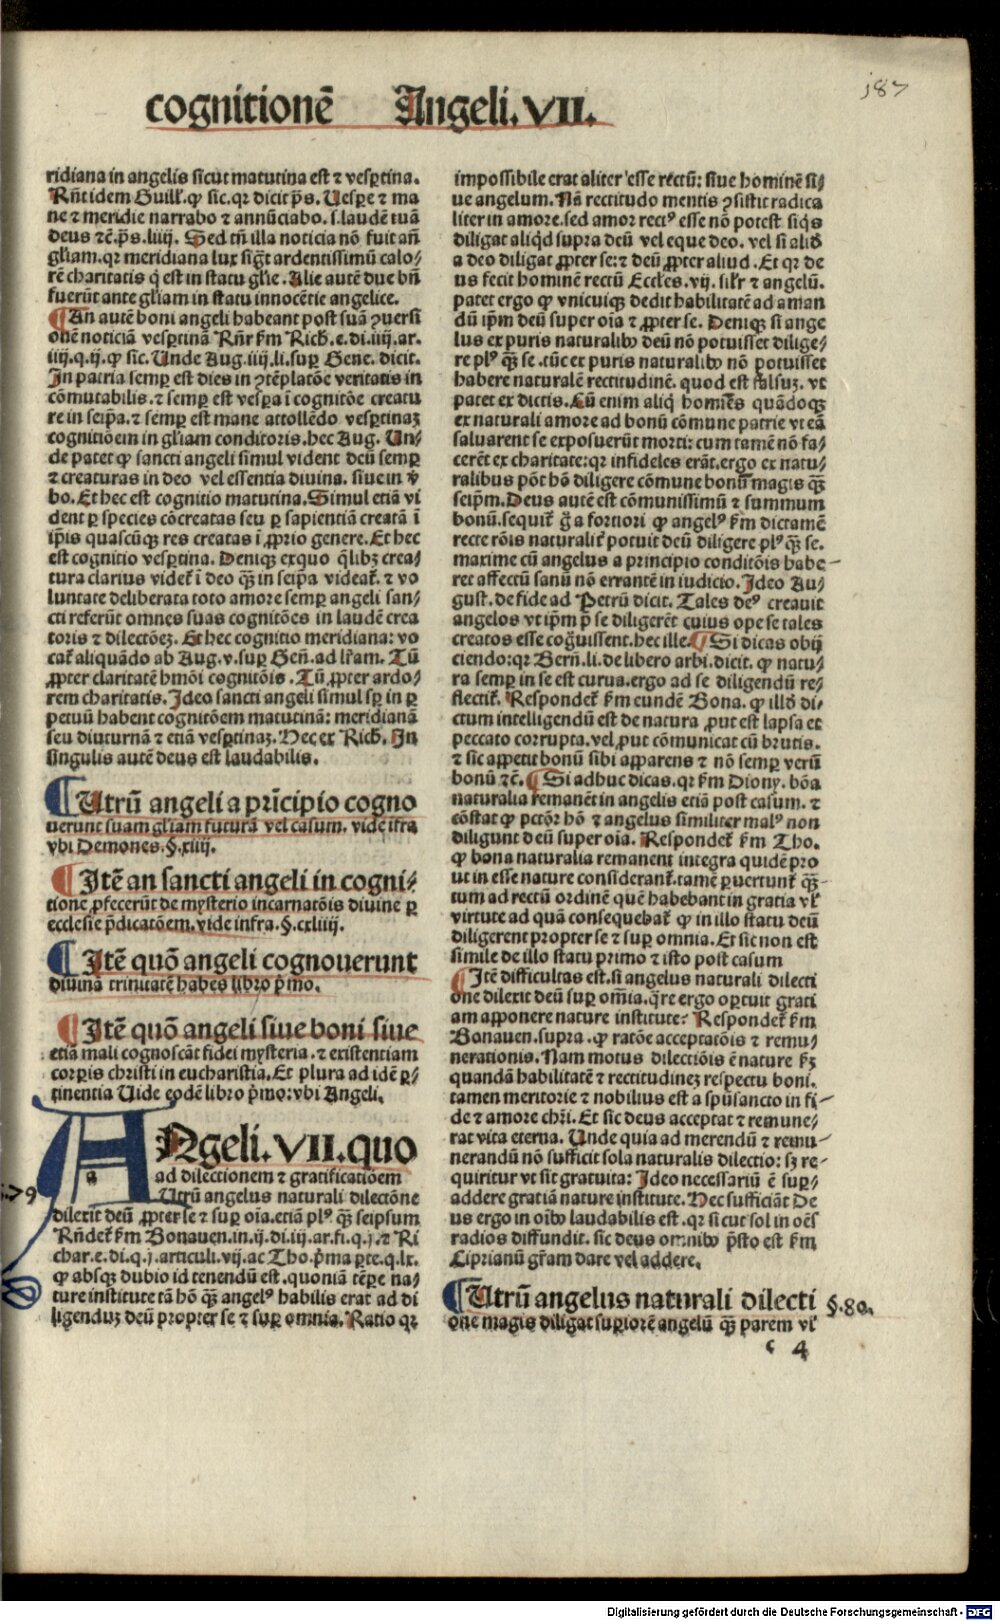 cognitionē Angeli. VII.
187
ridiana in angelis sicut matutina est ⁊ vesꝑtina.
Rñt idem Guill'. ꝙ sic. qꝛ dicit p̄s. Uesꝑe ⁊ ma
ne ⁊ meridie narrabo ⁊ annūciabo. s. laudē tuā
deus ⁊c̄. p̄s. liiij. Sed tñ illa noticia nō fuit añ
gl'iam. qꝛ meridiana lux sigt ardentissimū calo/
rē charitatis q̇ est in statu gl'ie. Alie autē due bñ
fuerūt ante gl'iam in statu innocētie angelice.
¶ An autē boni angeli habeant post suā ꝯuersi
onē noticiā vesꝑtinā Rñr ẜm Rich. e. di. iiij. ar.
iiij. q. ij. ꝙ sic. Unde Aug. iiij. li. suꝑ Gene. dicit.
In patria semꝑ est dies in ꝯtēplatōe veritatis in
cōmutabilis. ⁊ semꝑ est vesꝑa ī cognitōe creatu
re in seip̄a. ⁊ semꝑ est mane attollēdo vesꝑtinaꝫ
cognitiōem in gl'iam conditoris. hec Aug. Un/
de patet ꝙ sancti angeli simul vident deū semꝑ
⁊ creaturas in deo vel essentia diuina. siue in v̄
bo. Et hec est cognitio matutina. Simul etiā vi
dent ꝑ species cōcreatas seu ꝑ sapientiā creatā ī
ip̄is quascūqꝫ res creatas ī ꝓprio genere. Et hec
est cognitio vesꝑtina. Deniqꝫ exquo q̄libꝫ crea/
tura clarius videt' ī deo qꝫ̄ in seip̄a videat'. ⁊ vo
luntate deliberata toto amore semꝑ angeli san/
cti referūt omnes suas cognitōes in laudē crea
toris ⁊ dilectōeꝫ. Et hec cognitio meridiana: vo
cat' aliquādo ab Aug. v. suꝑ Geñ. ad lr̄am. Tū
ꝓpter claritatē hmōi cognitōis. Tū ꝓpter ardo/
rem charitatis. Ideo sancti angeli simul sꝑ in ꝑ
petuū habent cognitōem matutinā: meridianā
seu diuturnā ⁊ etiā vesꝑtinaꝫ. Hec ex Rich. In
singulis autē deus est laudabilis.
¶ Utrū angeli a prīcipio cogno
uerunt suam gl'iam futurā vel casum. vide īfra
vbi Demones. §. xiiij.
¶ Itē an sancti angeli in cogni/
tione ꝓfecerūt de mysterio incarnatōis diuine ꝑ
ecclesie p̄dicatōem. vide infra. §. cxliiij.
¶ Itē quō angeli cognouerunt
diuinā trinitatē habes libro p̄mo.
¶ Itē quō angeli siue boni siue
etiā mali cognoscāt fidei mysteria. ⁊ existentiam
corꝑis christi in eucharistia. Et plura ad idē ꝑ/
tinentia Uide eodē libro p̄mo: vbi Angeli.
ANgeli. VII. quo
ad dilectionem ⁊ gratificatiōem
Utrū angelus naturali dilectōne
dilexit deū ꝓpter se ⁊ suꝑ oīa. etiā pl' qꝫ̄ seipsum
Rñdet' ẜm Bonauen. in. ij. di. iij. ar. fi. q. j. ⁊ Ri
char. e. di. q. j. articuli. vij. ac Tho. p̄ma ꝑte. q. lx.
ꝙ absqꝫ dubio id tenendū est. quoniā tēꝑe na/
ture institute tā hō qꝫ̄ angel' habilis erat ad di
ligenduꝫ deū propter se ⁊ suꝑ omnia. Ratio qꝛ
79
impossibile erat aliter esse rectū: siue hominē si/
ue angelum. Nā rectitudo mentis ꝯsistit radica
liter in amore. sed amor rect' esse nō potest siqs
diligat aliqd supra deū vel eque deo. vel si aliđ
a deo diligat ꝓpter se: ⁊ deū ꝓpter aliud. Et qꝛ de
us fecit hominē rectū Eccles. vij. silr ⁊ angelū.
patet ergo ꝙ vnicuiqꝫ dedit habilitatē ad aman
dū ip̄m deū super oīa ⁊ ꝓpter se. Deniqꝫ si ange
lus ex puris naturalibꝰ deū nō potuisset dilige/
re pl' qꝫ̄ se. tūc ex puris naturalibꝰ nō potuisset
habere naturalē rectitudinē. quod est falsuꝫ. vt
patet ex dictis. Cū enim aliq̇ homīes quādoqꝫ
ex naturali amore ad bonū cōmune patrie vt eā
saluarent se exposuerūt morti: cum tamē nō fa/
cerēt ex charitate: qꝛ infideles erāt. ergo ex natu/
ralibus pōt hō diligere cōmune bonum magis qꝫ̄
seip̄m. Deus autē est cōmunissimū ⁊ summum
bonū. sequit' g̈ a fortiori ꝙ angel' ẜm dictamē
recte rōis naturalit' potuit deū diligere pl' qꝫ̄ se.
maxime cū angelus a principio conditōis habe-
ret affectū sanū nō errantē in iudicio. Ideo Au/
gust. de fide ad Petrū dicit. Tales de' creauit
angelos vt ip̄m p̄ se diligerēt cuius ope se tales
creatos esse cog̈uissent. hec ille. ¶ Si dicas obij
ciendo: qꝛ Berñ. li. de libero arbi. dicit. ꝙ natu/
ra semꝑ in se est curua. ergo ad se diligendū re/
flectit'. Respondet' ẜm eundē Bona. ꝙ illđ di/
ctum intelligendū est de natura ꝓut est lapsa et
peccato corrupta. vel ꝓut cōmunicat cū brutis.
⁊ sic appetit bonū sibi apparens ⁊ nō semꝑ verū
bonū ⁊c̄. ¶ Si adhuc dicas. qꝛ ẜm Diony. bōa
naturalia remanēt in angelis etiā post casum. ⁊
cōstat ꝙ pctōr hō ⁊ angelus similiter mal' non
diligunt deū super oīa. Respondet' ẜm Tho.
ꝙ bona naturalia remanent integra quidē pro
ut in esse nature considerant'. tamē ꝑuertunt' qꝫ̄-
tum ad rectū ordinē quē habebant in gratia vl'
virtute ad quā consequebat' ꝙ in illo statu deū
diligerent propter se ⁊ suꝑ omnia. Et sic non est
simile de illo statu primo ⁊ isto post casum
¶ Itē difficultas est. si angelus naturali dilecti
one dilexit deū suꝑ om̄ia. q̄re ergo oꝑtuit grati
am apponere nature institute? Respondet' ẜm
Bonauen. supra. ꝙ ratōe acceptatōis ⁊ remu/
nerationis. Nam motus dilectiōis ē nature ẜꝫ
quandā habilitatē ⁊ rectitudineꝫ respectu boni.
tamen meritorie ⁊ nobilius est a spūsancto in fi-
de ⁊ amore chri. Et sic deus acceptat ⁊ remune/
rat vita eterna. Unde quia ad merendū ⁊ remu-
nerandū nō sufficit sola naturalis dilectio: sꝫ re-
quiritur vt sit gratuita: Ideo necessariū ē suꝑ/
addere gratiā nature institute. Hec sufficiāt De
us ergo in oībꝰ laudabilis est. qꝛ sicut sol in oēs
radios diffundit. sic deus omnibꝰ p̄sto est ẜm
Ciprianū gr̄am dare vel addere.
¶ Utrū angelus naturali dilecti
one magis diligat superiorē angelū qꝫ̄ parem vl'
§. 80.
c 4
Digitalisierung gefördert durch die Deutsche Forschungsgemeinschaft - DFG